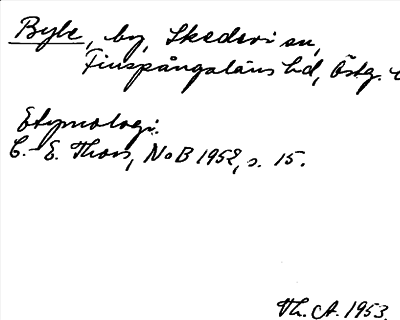 Byle, by, Skedevi sn,
Finspångaläns hd, Östg.
Etymologi:
C.-E. Thors, NoB 1952, s. 15.
Th. A. 1953.